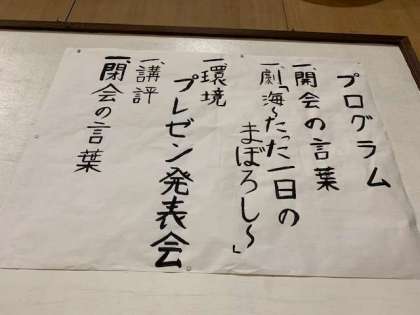 プログラム
一、開会の言葉
一、劇「海～たった一日の
まぼろし～」
一、環境
プレゼン発表会
一、講評
一、閉会の言葉